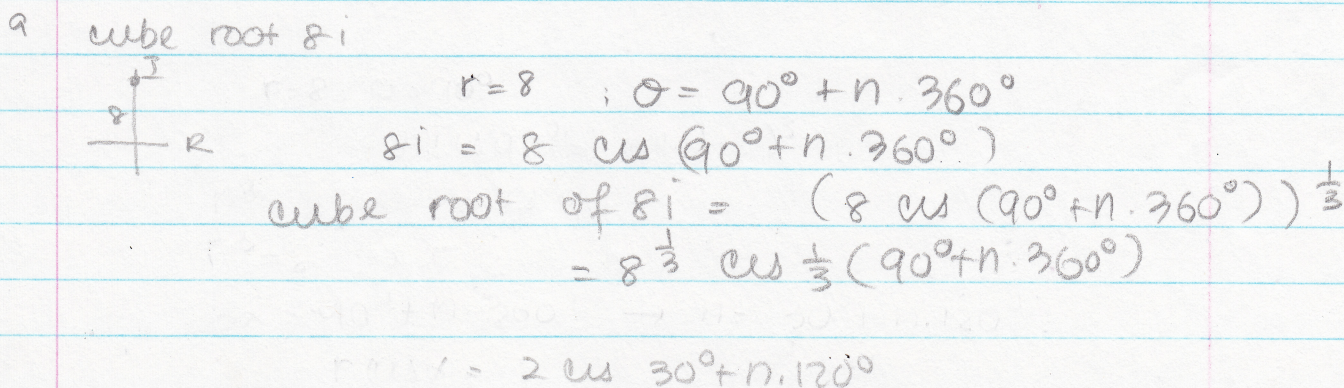 a cube root 8i
J
r = 8 ; θ = 90° + n . 360°
8
R
8i = 8 cis (90° + n . 360°)
cube root of 8i = (8 cis (90° + n . 360°))^1/3
= 8^1/3 cis 1/3 (90° + n . 360°)
= 2 cis 30° + n . 120°